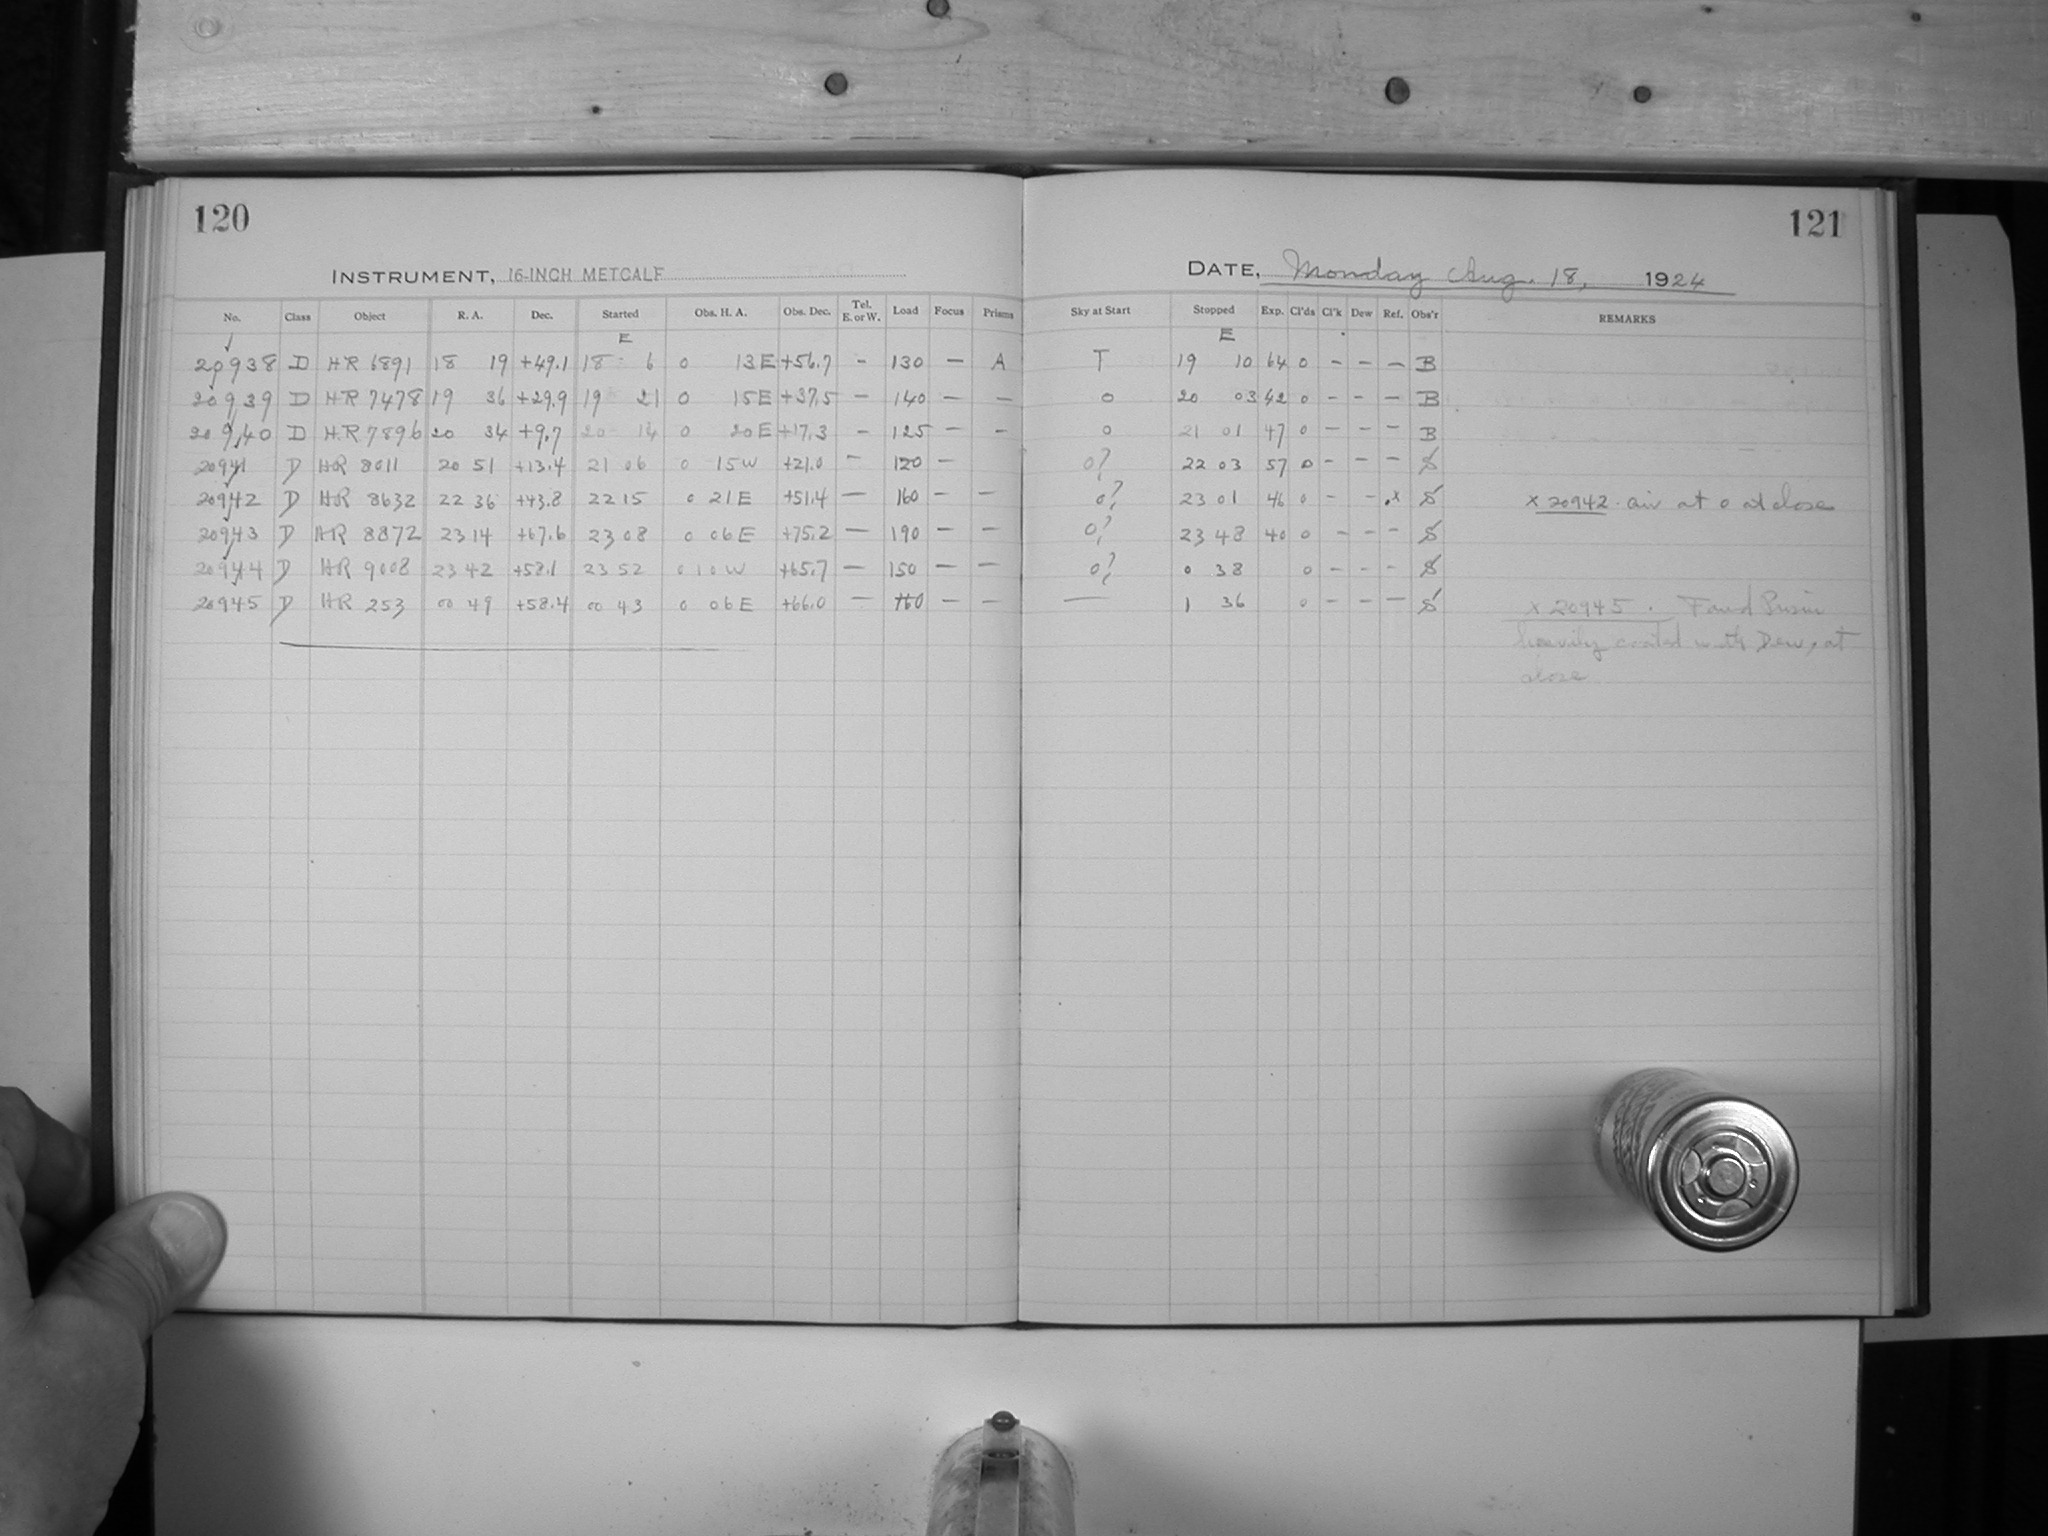 120
121
INSTRUMENT, 16-INCH METCALF
DATE, Monday Aug. 18, 1924
No. Class Object R. A. Dec. Started Obs. H. A. Obs. Dec. Tel. E. or W. Load Focus Prisms Sky at Start Stopped Exp. Cl'ds Cl'k Dew Ref. Obs'r REMARKS
E E
20938 D HR 6891 18 19 +49.1 18 6 0 13E +56.7 - 130 - A T 19 10 64 0 - - - B
20939 D HR 7478 19 36 +29.9 19 21 0 15E +37.5 - 140 - - 0 20 03 42 0 - - - B
20940 D HR 7896 20 34 +9.7 20 14 0 20E +17.3 - 125 - - 0 21 01 47 0 - - - B
20941 D HR 8011 20 51 +13.4 21 06 0 15W +21.0 - 120 - 0? 22 03 57 0 - - - S
20942 D HR 8632 22 36 +43.8 22 15 0 21E +51.4 - 160 - - 0? 23 01 46 0 - - x S x 20942. air at 0 at close
20943 D HR 8872 23 14 +67.6 23 08 0 06E +75.2 - 190 - - 0? 23 48 40 0 - - - S
20944 D HR 9008 23 42 +58.1 23 52 0 10W +65.7 - 150 - - 0? 0 38 0 - - - S
20945 D HR 253 00 49 +58.4 00 43 0 06E +66.0 - 160 - - — 1 36 0 - - - S x 20945. Found Prism
heavily coated with Dew, at
close